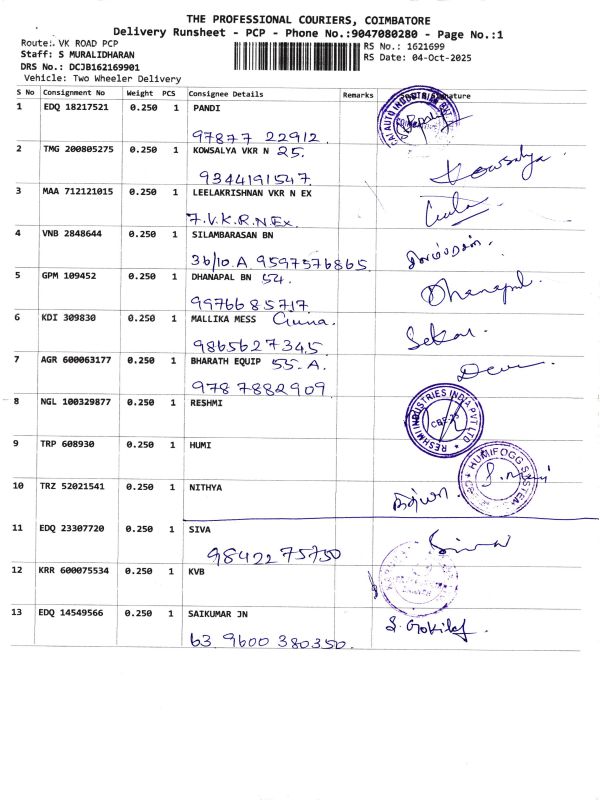 THE PROFESSIONAL COURIERS, COIMBATORE
Delivery Runsheet - PCP - Phone No.:9047080280 - Page No.:1
Route: VK ROAD PCP
Staff: S MURALIDHARAN
DRS No.: DCJB162169901
Vehicle: Two Wheeler Delivery
RS No.: 1621699
RS Date: 04-Oct-2025
S No Consignment No Weight PCS Consignee Details Remarks Signature
1 EDQ 18217521 0.250 1 PANDI
97877 22912
2 TMG 200805275 0.250 1 KOWSALYA VKR N 25.
9344191547 Kowsalya
3 MAA 712121015 0.250 1 LEELAKRISHNAN VKR N EX
7.V.K.R.N.Ex
4 VNB 2848644 0.250 1 SILAMBARASAN BN
36/10.A 9597576865
5 GPM 109452 0.250 1 DHANAPAL BN 54.
9976685717 Dhanapal
6 KDI 309830 0.250 1 MALLIKA MESS
9865627345 Sekar.
7 AGR 600063177 0.250 1 BHARATH EQUIP 55.A.
9787882909
8 NGL 100329877 0.250 1 RESHMI
RESHMI INDUSTRIES INDIA PVT LTD
9 TRP 608930 0.250 1 HUMI
HUMIFOGG SYSTEM
10 TRZ 52021541 0.250 1 NITHYA நித்யா.
11 EDQ 23307720 0.250 1 SIVA Siva
98422 75750
12 KRR 600075534 0.250 1 KVB
13 EDQ 14549566 0.250 1 SAIKUMAR JN
63 9600 380350.